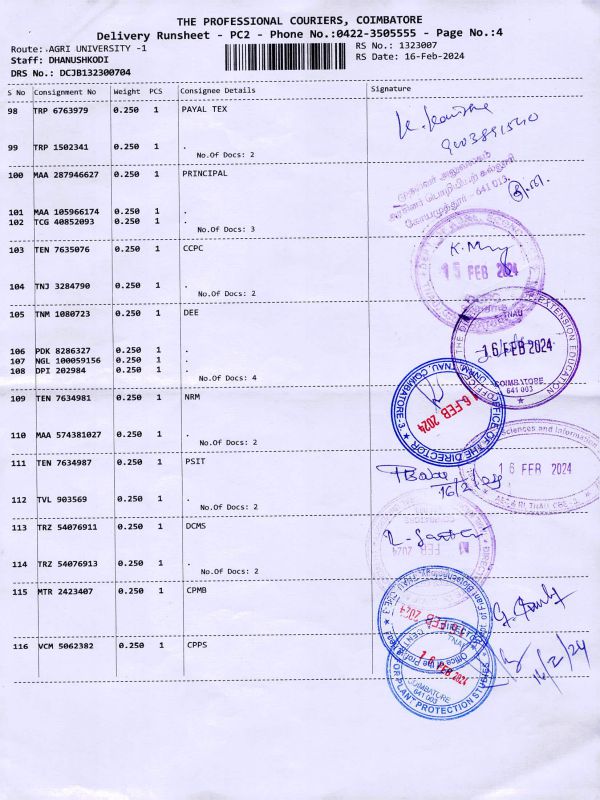 THE PROFESSIONAL COURIERS, COIMBATORE
Delivery Runsheet - PC2 - Phone No.:0422-3505555 - Page No.:4
Route: AGRI UNIVERSITY -1
RS No.: 1323007
Staff: DHANUSHKODI
RS Date: 16-Feb-2024
DRS No.: DCJB132300704
S No Consignment No Weight PCS Consignee Details Signature
98 TRP 6763979 0.250 1 PAYAL TEX
99 TRP 1502341 0.250 1 .
No.Of Docs: 2
100 MAA 287946627 0.250 1 PRINCIPAL
கோயமுத்தூர் - 641 013.
101 MAA 105966174 0.250 1 .
102 TCG 40852093 0.250 1 .
No.Of Docs: 3
103 TEN 7635076 0.250 1 CCPC
15 FEB 2024
104 TNJ 3284790 0.250 1 .
No.Of Docs: 2
105 TNM 1080723 0.250 1 DEE
TNAU
EXTENSION EDUCATION
16 FEB 2024
COIMBATORE
641 003
106 PDK 8286327 0.250 1 .
107 NGL 100059156 0.250 1 .
108 DPI 202984 0.250 1 .
No.Of Docs: 4
109 TEN 7634981 0.250 1 NRM
OFFICE OF THE DIRECTOR
TNAU, COIMBATORE-3
16 FEB 2024
110 MAA 574381027 0.250 1 .
No.Of Docs: 2
111 TEN 7634987 0.250 1 PSIT
Sciences and Information
16 FEB 2024
16/2/24
112 TVL 903569 0.250 1 .
No.Of Docs: 2
113 TRZ 54076911 0.250 1 DCMS
114 TRZ 54076913 0.250 1 .
No.Of Docs: 2
115 MTR 2423407 0.250 1 CPMB
of Plant Biotechnology
116 VCM 5062382 0.250 1 CPPS
16 FEB 2024
COIMBATORE
641 003
FOR PLANT PROTECTION STUDIES
16/2/24